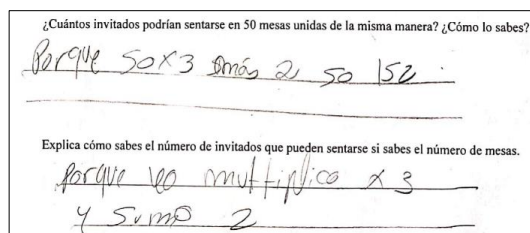 ¿Cuántos invitados podrían sentarse en 50 mesas unidas de la misma manera? ¿Cómo lo sabes?
Porque 50x3 más 2 so 152.
Explica cómo sabes el número de invitados que pueden sentarse si sabes el número de mesas.
porque lo multiplico x 3
y sumo 2